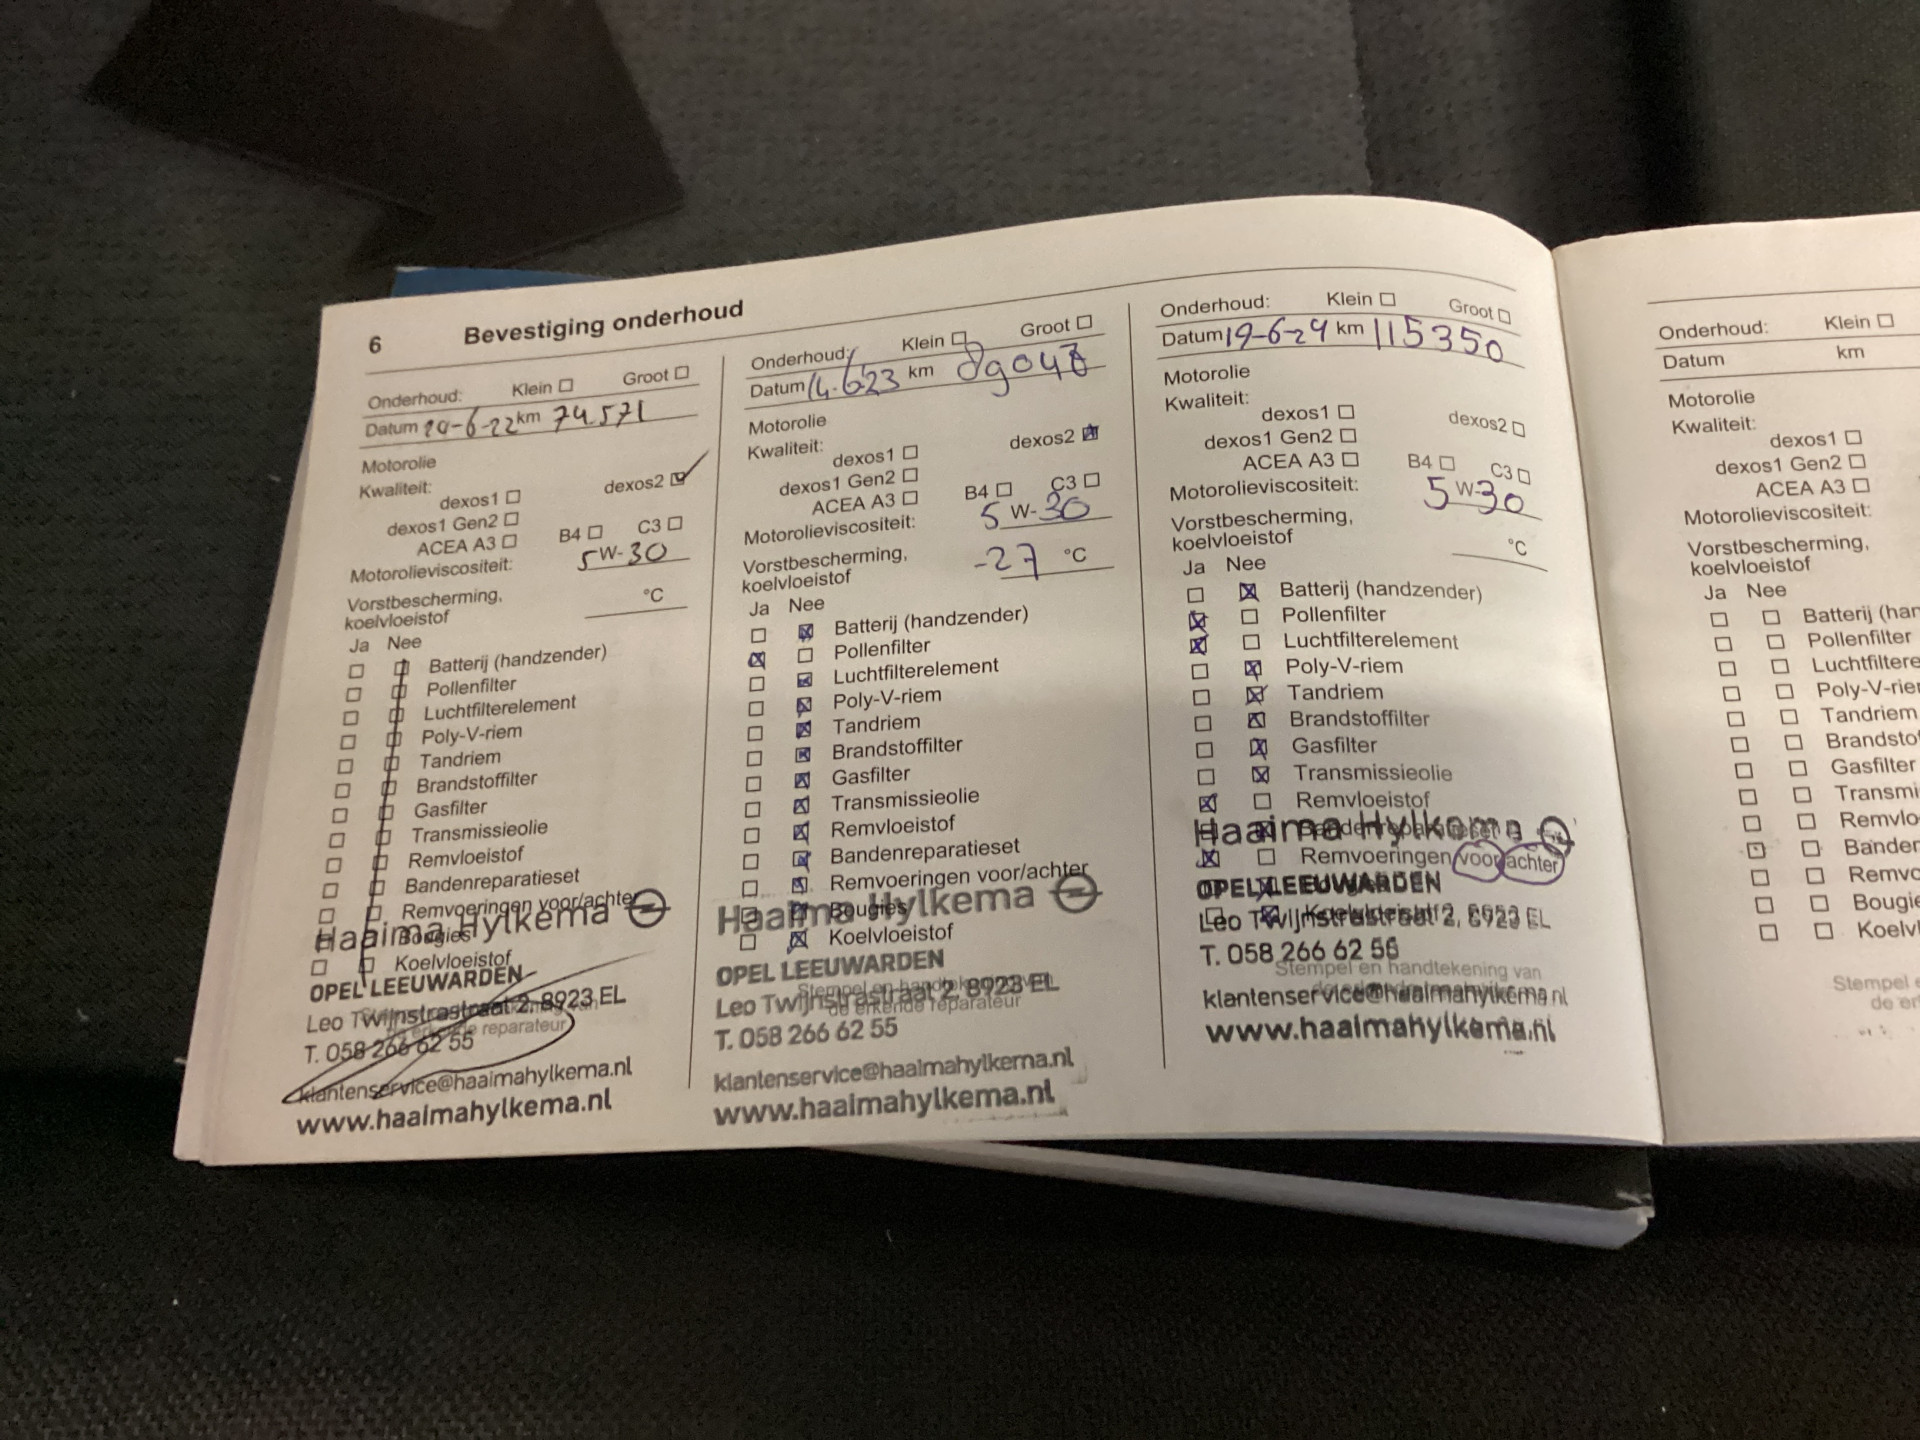 6 Bevestiging onderhoud
Onderhoud: Klein ☐ Groot ☐
Datum 20-6-22 km 74.571
Motorolie
Kwaliteit:
dexos1 ☐ dexos2 ☑
dexos1 Gen2 ☐
ACEA A3 ☐ B4 ☐ C3 ☐
Motorolieviscositeit: 5 W-30
Vorstbescherming,
koelvloeistof °C
Ja Nee
Batterij (handzender)
Pollenfilter
Luchtfilterelement
Poly-V-riem
Tandriem
Brandstoffilter
Gasfilter
Transmissieolie
Remvloeistof
Bandenreparatieset
Remvoeringen voor/achter
Haaima Hylkema
Bougies
Koelvloeistof
OPEL LEEUWARDEN
Leo Twijnstrastraat 2, 8923 EL
de erkende reparateur
T. 058 266 62 55
klantenservice@haaimahylkema.nl
www.haaimahylkema.nl
Onderhoud: Klein ☐ Groot ☐
Datum 14-6-23 km 89048
Motorolie
Kwaliteit:
dexos1 ☐ dexos2 ☒
dexos1 Gen2 ☐
ACEA A3 ☐ B4 ☐ C3 ☐
Motorolieviscositeit: 5 W-30
Vorstbescherming,
koelvloeistof -27 °C
Ja Nee
☐ ☒ Batterij (handzender)
☒ ☐ Pollenfilter
☐ ☒ Luchtfilterelement
☐ ☒ Poly-V-riem
☐ ☒ Tandriem
☐ ☒ Brandstoffilter
☐ ☒ Gasfilter
☐ ☒ Transmissieolie
☐ ☒ Remvloeistof
☐ ☒ Bandenreparatieset
☐ ☒ Remvoeringen voor/achter
Haaima Hylkema
☐ ☒ Bougies
☐ ☒ Koelvloeistof
OPEL LEEUWARDEN
Stempel en handtekening van
Leo Twijnstrastraat 2, 8923 EL
de erkende reparateur
T. 058 266 62 55
klantenservice@haaimahylkema.nl
www.haaimahylkema.nl
Onderhoud: Klein ☐ Groot ☐
Datum 19-6-24 km 115350
Motorolie
Kwaliteit:
dexos1 ☐ dexos2 ☐
dexos1 Gen2 ☐
ACEA A3 ☐ B4 ☐ C3 ☐
Motorolieviscositeit: 5 W-30
Vorstbescherming,
koelvloeistof °C
Ja Nee
☐ ☒ Batterij (handzender)
☒ ☐ Pollenfilter
☒ ☐ Luchtfilterelement
☐ ☒ Poly-V-riem
☐ ☒ Tandriem
☐ ☒ Brandstoffilter
☐ ☒ Gasfilter
☐ ☒ Transmissieolie
☒ ☐ Remvloeistof
Haaima Hylkema
☒ ☐ Remvoeringen voor/achter
OPEL LEEUWARDEN
Leo Twijnstrastraat 2, 8923 EL
T. 058 266 62 55
Stempel en handtekening van
klantenservice@haaimahylkema.nl
www.haaimahylkema.nl
Onderhoud: Klein ☐
Datum km
Motorolie
Kwaliteit:
dexos1 ☐
dexos1 Gen2 ☐
ACEA A3 ☐
Motorolieviscositeit:
Vorstbescherming,
koelvloeistof
Ja Nee
☐ ☐ Batterij (han
☐ ☐ Pollenfilter
☐ ☐ Luchtfiltere
☐ ☐ Poly-V-rie
☐ ☐ Tandriem
☐ ☐ Brandsto
☐ ☐ Gasfilter
☐ ☐ Transmi
☐ ☐ Remvlo
☐ ☐ Banden
☐ ☐ Remvo
☐ ☐ Bougie
☐ ☐ Koelvl
Stempel
de er